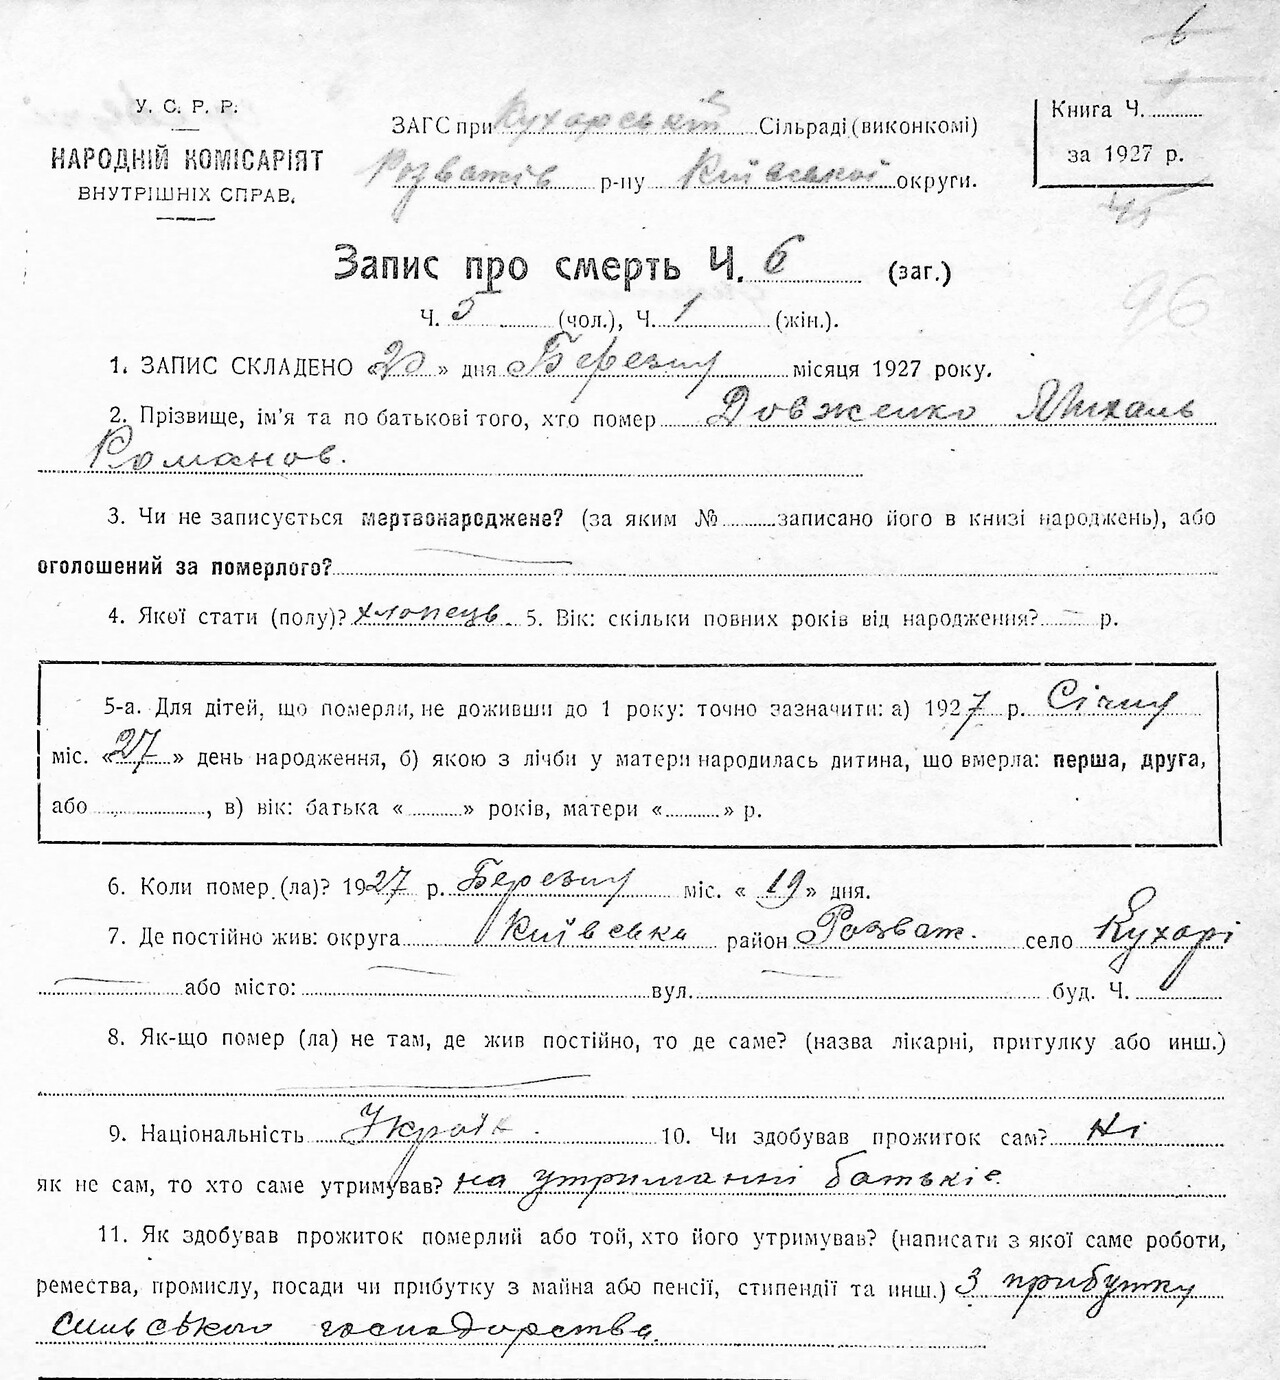 6
У. С. Р. Р.
НАРОДНІЙ КОМІСАРІЯТ
ВНУТРІШНІХ СПРАВ.
ЗАГС при Кухарській Сільраді (виконкомі)
Розважів р-ну Київської округи.
Книга Ч.
за 1927 р.
96
Запис про смерть Ч. 6 (заг.)
Ч. 5 (чол.), Ч. 1 (жін.).
1. ЗАПИС СКЛАДЕНО «20» дня Березня місяця 1927 року.
2. Прізвище, ім'я та по батькові того, хто помер Довженко Михаль
Романов.
3. Чи не записується мертвонароджене? (за яким № записано його в книзі народжень), або
оголошений за померлого?
4. Якої стати (полу)? хлопець 5. Вік: скільки повних років від народження? — р.
5-а. Для дітей, що померли, не доживши до 1 року: точно зазначити: а) 1927 р. Січня
міс. «27» день народження, б) якою з лічби у матери народилась дитина, що вмерла: перша, друга,
або , в) вік: батька « » років, матери « » р.
6. Коли помер (ла)? 1927 р. Березня міс. «19» дня.
7. Де постійно жив: округа Київська район Розваж. село Кухарі
або місто: вул. буд. Ч.
8. Як-що помер (ла) не там, де жив постійно, то де саме? (назва лікарні, притулку або инш.)
9. Національність Україн. 10. Чи здобував прожиток сам? Ні
як не сам, то хто саме утримував? на утриманні батьків.
11. Як здобував прожиток померлий або той, хто його утримував? (написати з якої саме роботи,
ремества, промислу, посади чи прибутку з майна або пенсії, стипендії та инш.) З прибутку
сільського господарства.